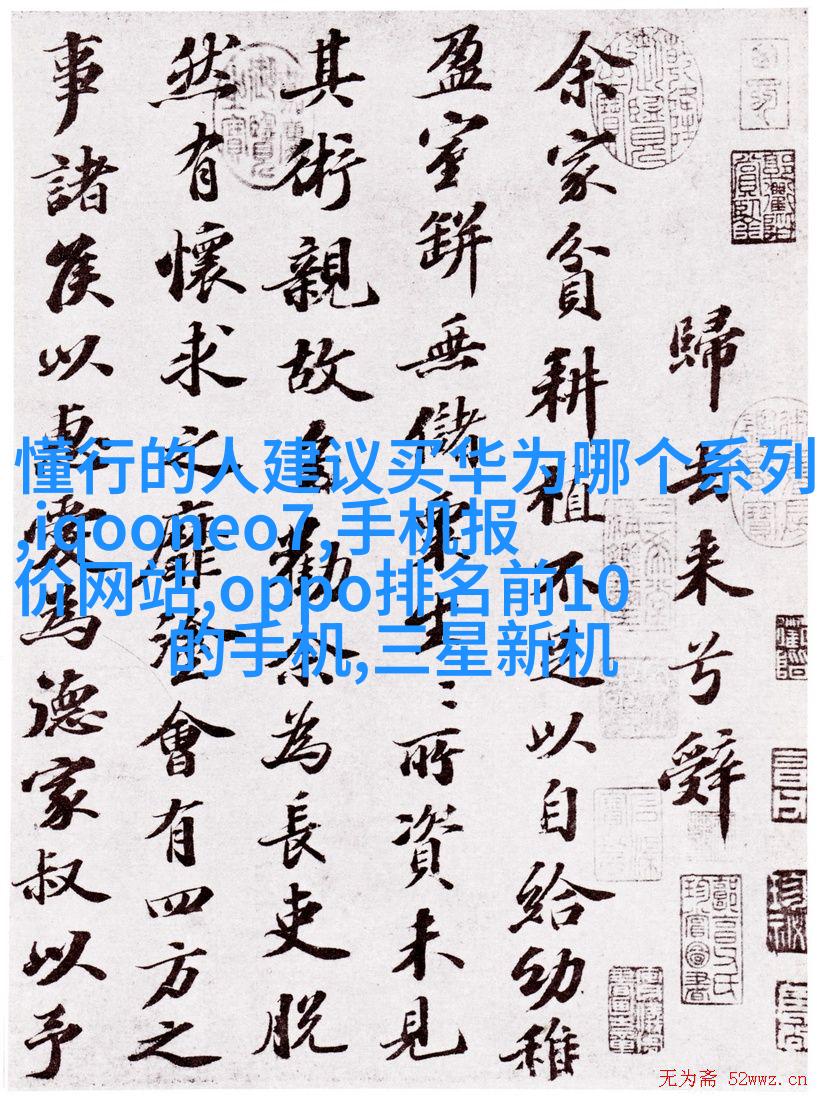 歸去来兮辭
余家貧耕植不足以自給幼稚
盈室缾無儲粟生〻所資未見
其術親故多勸余為長吏脱
然有懷求之靡途會有四方之
事諸侯以惠愛為德家叔以予
懂行的人建议买华为哪个系列
,iqooneo7,手机报
价网站,oppo排名前10
的手机,三星新机
无为斋 52wwz.cn